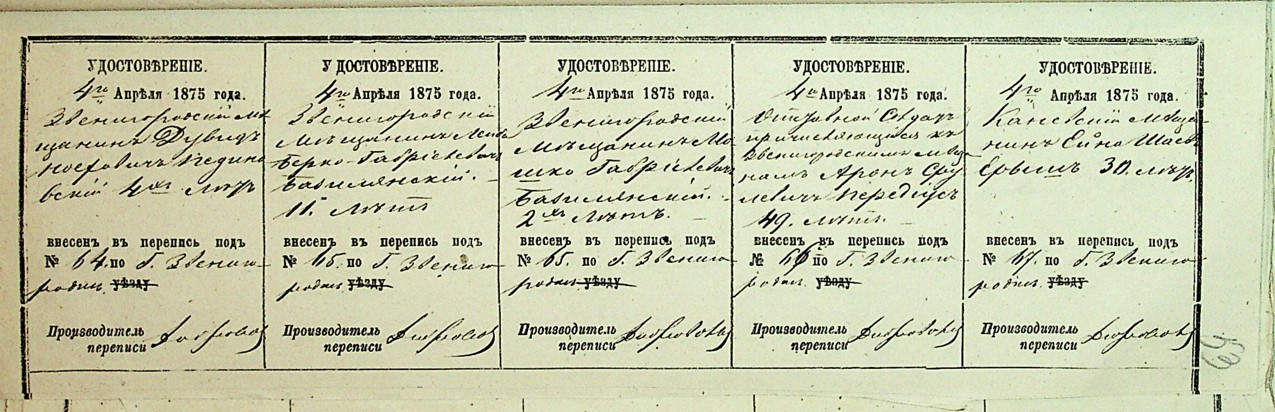 УДОСТОВѢРЕНІЕ.
4го Апрѣля 1875 года.
Звенигородскій мѣ
щанинъ Дувидъ
Іосевичъ
вскій 4хъ лѣтъ
внесенъ въ перепись подъ
№ 64. по г. Звениго
родка уѣзду
Производитель
переписи
УДОСТОВѢРЕНІЕ.
4го Апрѣля 1875 года.
Звенигородскій
мѣщанинъ
Берко Гаврілевичъ
Базилянскій.
11. лѣтъ
внесенъ въ перепись подъ
№ 65. по г. Звениго
родка уѣзду
Производитель
переписи
УДОСТОВѢРЕНІЕ.
4го Апрѣля 1875 года.
Звенигородскій
мѣщанинъ Мо
шко Гаврілевичъ
Базилянскій.
2хъ лѣтъ.
внесенъ въ перепись подъ
№ 65. по г. Звениго
родка уѣзду
Производитель
переписи
УДОСТОВѢРЕНІЕ.
4го Апрѣля 1875 года.
Отставной Солдатъ
причисляющійся къ
Звенигородскимъ мѣща
намъ Аронъ Сру
левичъ
49. лѣтъ.
внесенъ въ перепись подъ
№ 66 по г. Звениго
родка уѣзду
Производитель
переписи
УДОСТОВѢРЕНІЕ.
4го Апрѣля 1875 года.
Каневскій мѣща
нинъ
30. лѣтъ
внесенъ въ перепись подъ
№ 67. по г. Звениго
родка уѣзду
Производитель
переписи